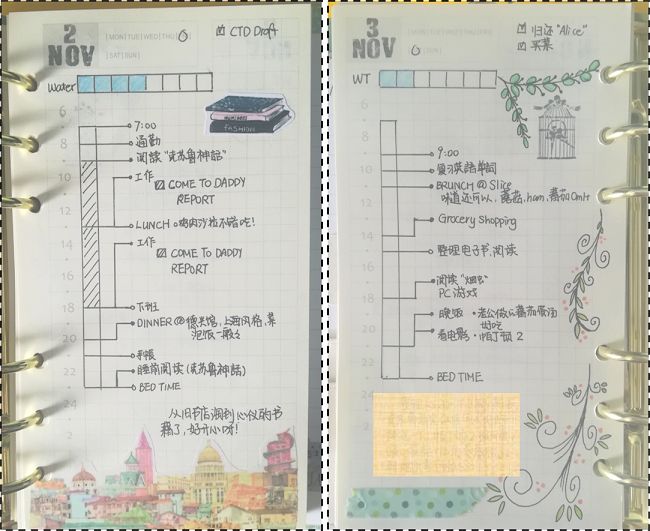 2
NOV
MON TUE WED THU
SAT SUN
CTD Draft
Water
6
7:00
8
通勤
阅读“克苏鲁神话”
10
工作
COME TO DADDY
REPORT
12
LUNCH 鸡肉沙拉不错吃!
14
工作
COME TO DADDY
REPORT
16
18
下班
DINNER@德兴馆,上画风格,菜
泡饭一般么
20
手帐
22
睡前阅读(克苏鲁神话)
BED TIME
24
2
从旧书店淘到心仪的书
籍了,好开心呀!
FASHION
3
NOV
MON TUE WED THU FRI
SUN
归还“Alice”
买菜
WT
6
8
9:00
10
复习英語单詞
BRUNCH @ Slice
味道还可以,蘑菇,ham,蕃茄Omlt
12
Grocery shopping
14
整理电子书,阅读
16
阅读
PC游戏
18
晚饭 · 老公做的蕃茄蛋汤
好吃
20
看电影 · 帕丁顿 2
22
BED TIME
24
2